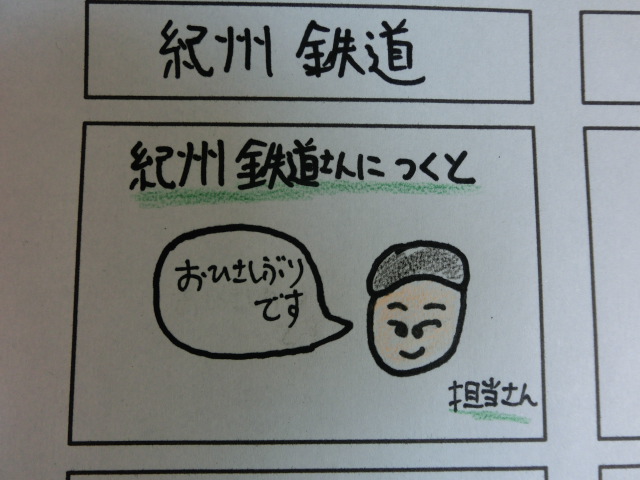 紀州鉄道
紀州鉄道さんにつくと
おひさしぶり
です
担当さん